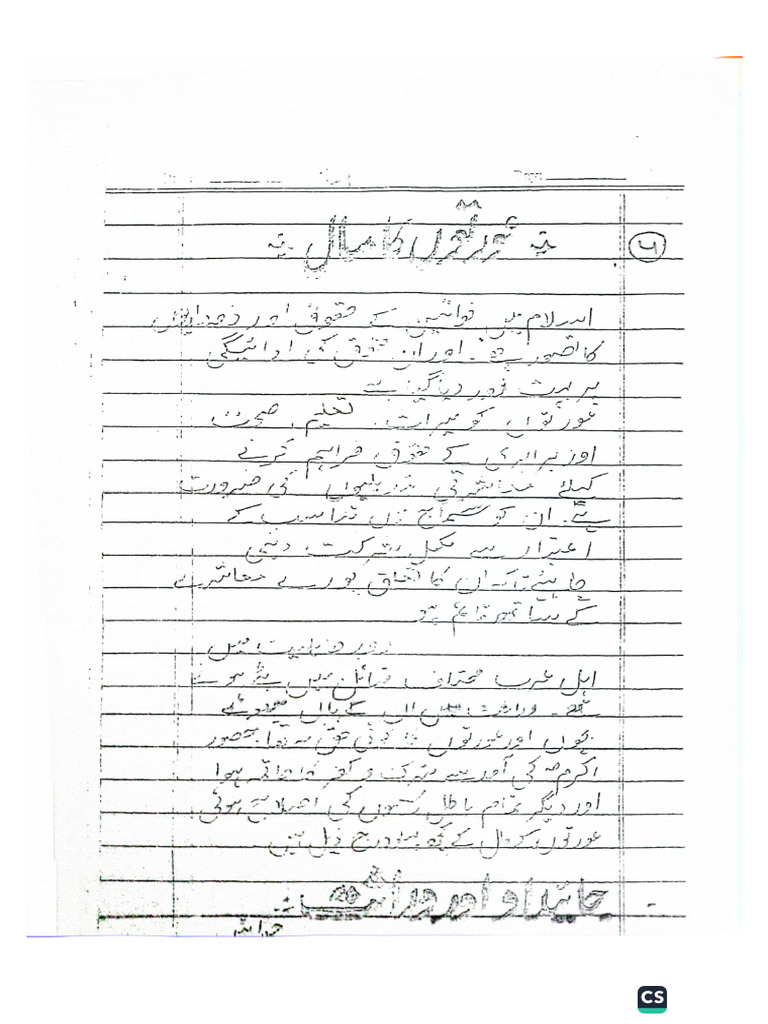 ۴
عورتوں کا مال
اسلام میں خواتین کے حقوق اور ذمہ داریوں
کا تصور ہے۔ اور ان حقوق کی ادائیگی
پر بہت زور دیا گیا ہے
عورتوں کو میراث، تعلیم، صحت
اور برابری کے حقوق فراہم کرنے
کیلئے معاشرتی تبدیلیوں کی ضرورت
ہے۔ ان کو سماج میں تناسب کے
اعتبار سے مکمل شرکت دینی
چاہئیے تاکہ ان کا تعلق پورے معاشرے
کے ساتھ قائم ہو
دور جاہلیت میں
اہل عرب مختلف قبائل میں بٹے ہوئے
تھے۔ وراثت میں ان کے ہاں چھوٹے
بچوں اور عورتوں کا کوئی حق نہ تھا۔ حضور
اکرمؐ کی آمد سے شرک و کفر کا خاتمہ ہوا
اور دیگر تمام باطل رسموں کی اصلاح ہوئی
عورتوں کے مال کے کچھ درج ذیل ہیں
جائیداد اور وراثت
CS